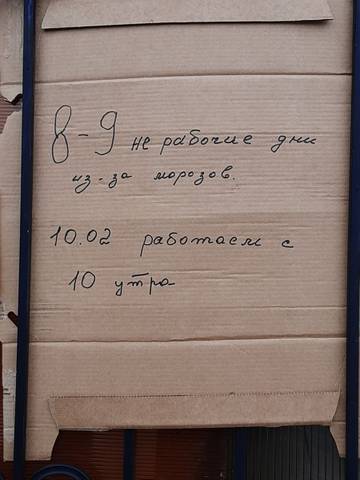 8-9 не рабочие дни
из-за морозов.
10.02 работаем с
10 утра